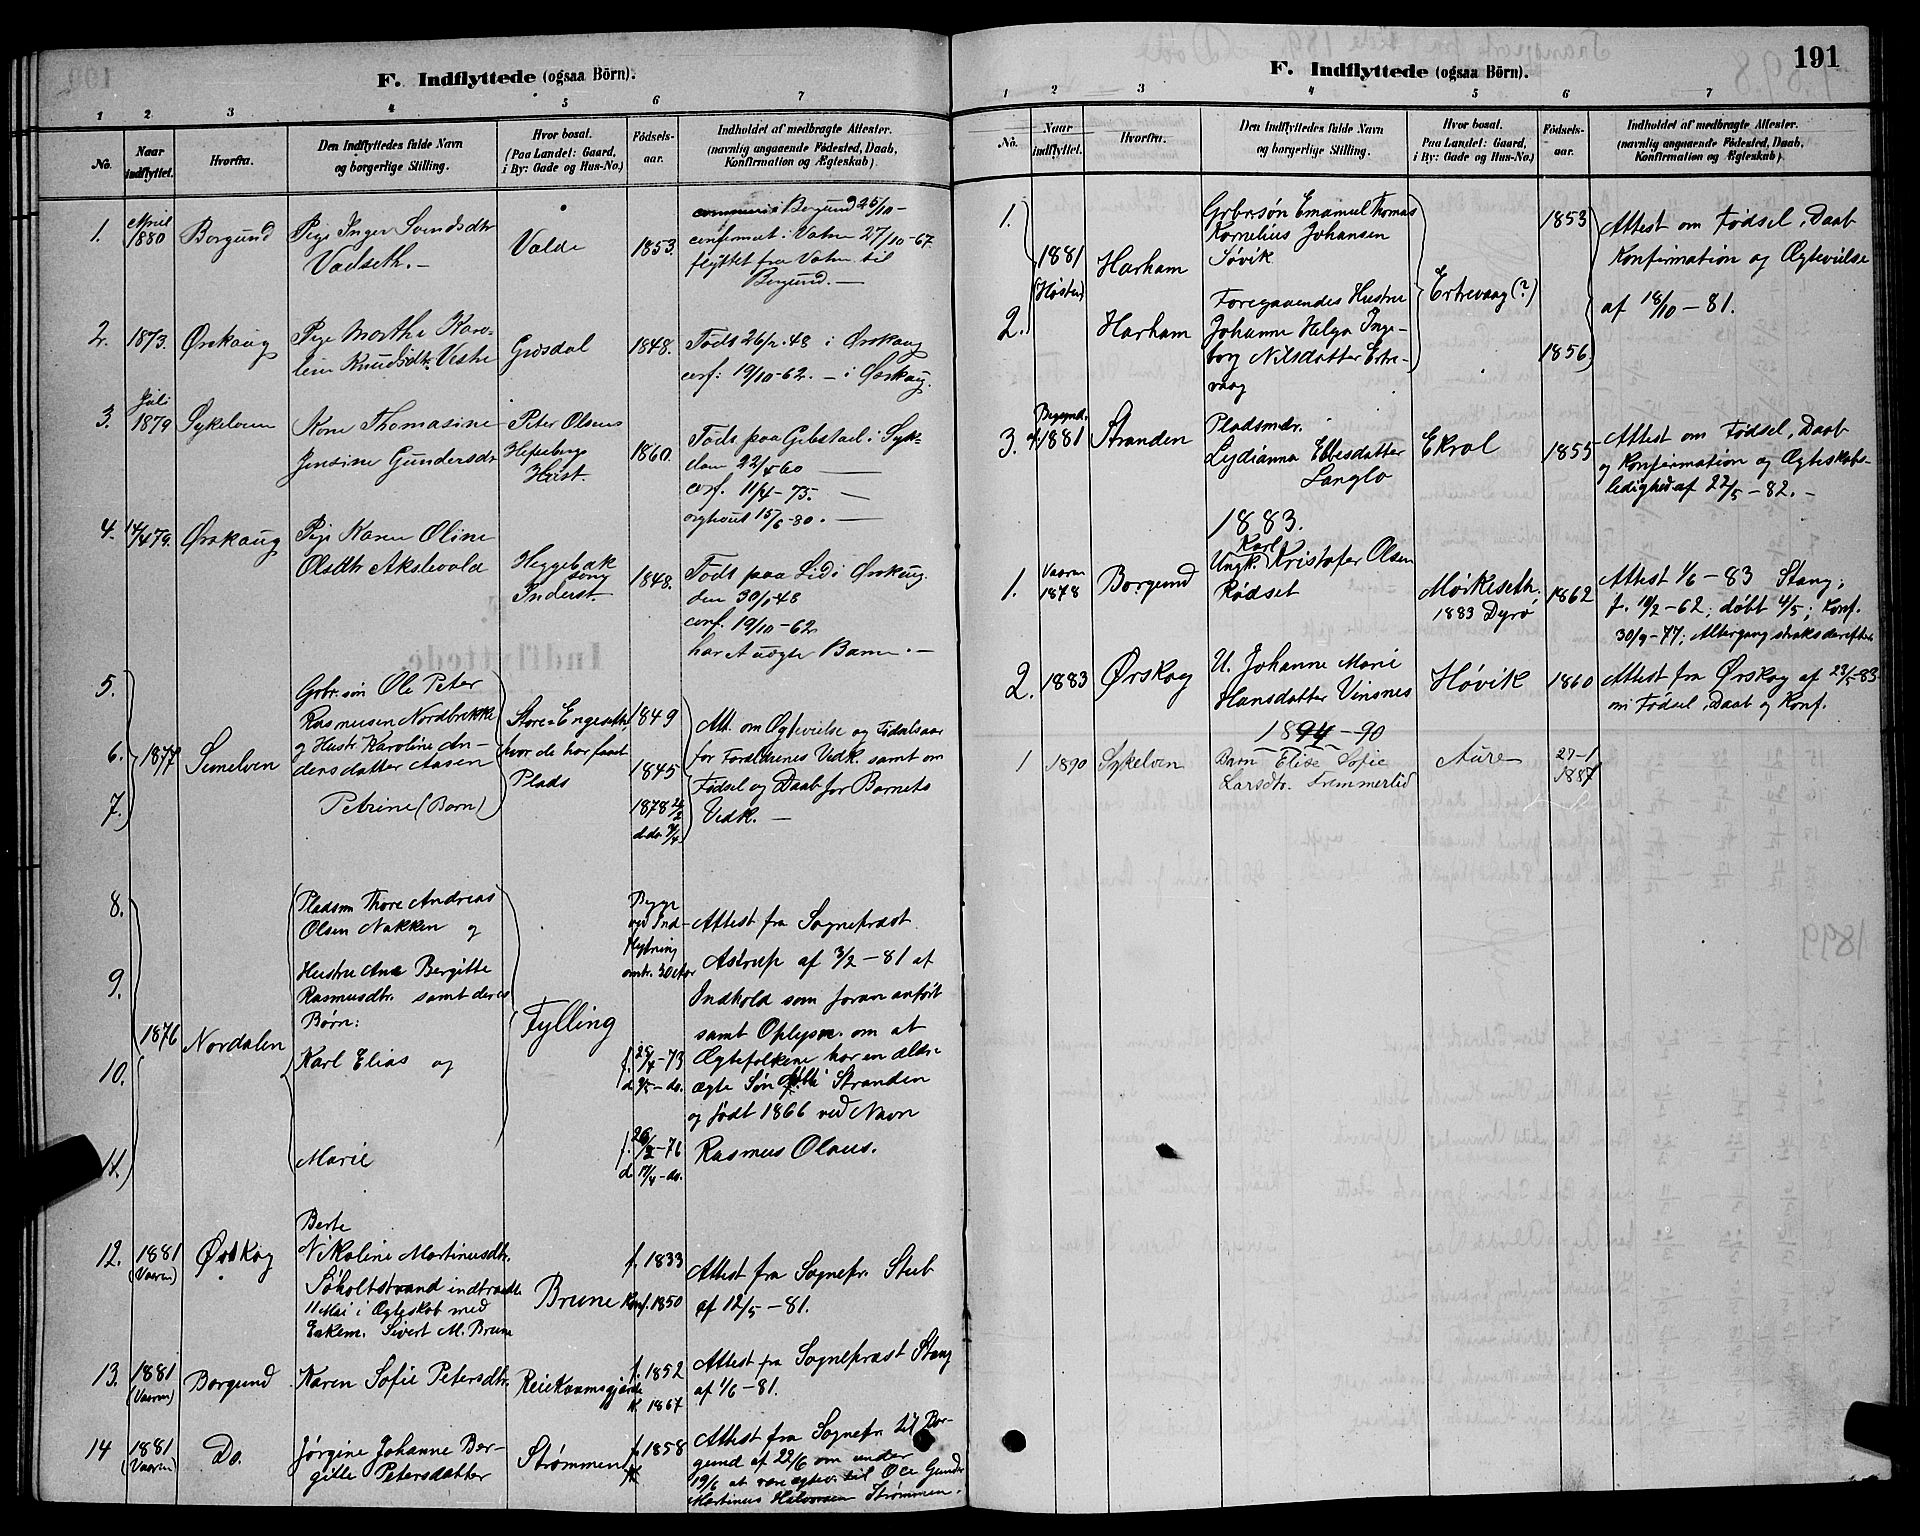 F. Indflyttede (ogsaa Börn).
1 2 3 4 5 6 7
No.
Naar indflyttet.
Hvorfra.
Den Indflyttedes fulde Navn
og borgerlige Stilling.
Hvor bosat.
(Paa Landet: Gaard,
i By: Gade og Hus-No.)
Fødsels-
aar.
Indholdet af medbragte Attester.
(navnlig angaaende Födested, Daab,
Konfirmation og Ægteskab).
1. April 1880 Borgund
Pige Inger Svendsdtr
Vadseth. –
Valde
1853.
Borgund 25/10 –
confirmert i Vatne 27/10 – 67
flyttet fra Vatne til
Borgund. —
2. 1873. Ørskaug
Pige Marthe Karo-
line Knudsdtr. Vestre
Grøsdal
1848.
Født 26/2. 48 i Ørskaug
conf: 19/10 – 62. – i Ørskaug.
3. Juli 1879 Sykelven
Kone Thomasine
Jensine Gundersdtr
Peter Olsens
Hust.
1860.
Født paa i Syk-
den 22/4 60 —
conf. 11/4 – 75. —
15/6 – 80. —
4. 14/4 79. Ørskaug
Pige Karen Oline
Olsdtr Akslevold
Heggebak
Inderst.
1848.
Født paa Lid i Ørskaug.
den 30/1 48
conf. 19/10 – 62
har A uægte Barn. –
5.
6.
7.
1877 Sunelven
Grbr.søn Ole Peter
Rasmussen Nordbrekke
og Hustr Karoline An-
dersdatter Aasen
Petrine (Barn)
Store-Engeseth,
hvor de har faaet
Plads
1849
1845
1878 2/2
dbt. 7/4
Att. om Ægtevielse og Fødselsaar
for Forældrenes Vedk. samt om
Fødsel og Daab for Barnets
Vedk. –
8.
9.
10.
11.
1876 Nordalen
Pladsm Thore Andreas
Olsen Nakken og
Hustru Ane Bergitte
Rasmusdtr. samt deres
Børn:
Karl Elias og
Marie
Fylling
Begge
ved Ind-
flytning
omtr. 30 Aar
f. 29/4 – 73
d. 4/5 – do.
f. 26/2 – 76
d. 17/4 – do.
Attest fra Sognepræst
Astrup af 3/2 – 81 af
Indhold som foran anført
samt Oplysn. om at
Ægtefolkene har en ældre
ægte Søn i Stranden
og født 1866 ved Navn
Rasmus Olaus.
12. 1881 (Vaaren) Ørskog
Berte
Nikoline Martinusdtr.
Søholtstrand indtraadte
11 Mai i Ægteskab med
Enkem. Sivert M. Brune
Brune
f. 1833
Konf. 1850
Attest fra Sognepr. Stub
af 12/5 – 81.
13. 1881 (Vaaren) Borgund
Karen Sofie Petersdtr.
Reiekaamsgjærde
f. 1852
K. 1867
Attest fra Sognepræst Stang
af 1/6 – 81.
14 1881 (Vaaren) Do.
Jørgine Johanne Ber-
gitte Petersdatter
Strømmen
f. 1858
K
Attest fra Sognepr. til Bor-
gund af 22/6 om under
19/6 at være ægtev. til Ole Gundr
Martinus Halvorsen Strømmen.
191
F. Indflyttede (ogsaa Börn).
1 2 3 4 5 6 7
No.
Naar indflyttet.
Hvorfra.
Den Indflyttedes fulde Navn
og borgerlige Stilling.
Hvor bosat.
Paa Landet: Gaard,
i By: Gade og Hus-No.)
Födsels-
aar.
Indholdet af medbragte Attester.
(navnlig angaaende Födested, Daab,
Konfirmation og Ægteskab).
1.
2.
1881 (Høsten)
Harham
Harham
Grbr.søn Emanuel Thomas
Kornelius Johansen
Søvik
Foregaaendes Hustru
Johanne Helga Inge-
borg Nilsdatter Ertre-
vaag
Ertrevaag (?)
1853
1856
Attest om Fødsel, Daab
Konfirmation og Ægtevielse
af 18/10 – 81.
3. Begynd. af 1881 Stranden
Pladsmdr.
Lydianna Ellesdatter
Langlo
Ekrol
1855
Attest om Fødsel, Daab
og Konfirmation og Ægteskabs-
ledighed af 22/5 – 82. –
1883.
1. Vaaren 1878 Borgund
Ungk. Karl Kristofer Olsen
Rødset
Mørkeseth.
1883 Dyrø
1862
Attest 1/6 – 83 Stang,
f. 19/2 – 62; døbt 4/5; Konf.
30/9 – 77; Altergang straks derefter.
2. 1883 Ørskog
U. Johanne Marie
Hansdatter Vinsnes
Høvik
1860
Attest fra Ørskog af 23/5 – 83
om Fødsel, Daab og Konf.
1894 – 90
1 1890 Sykelven
Barn Elise Sofie
Larsdtr. Fremmerlid
Aure
27–1
1887